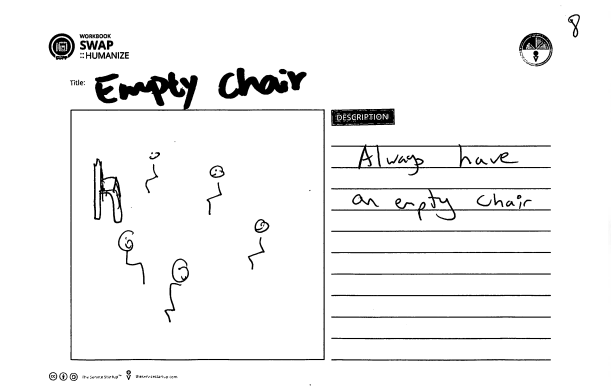 8
WORKBOOK
SWAP
::HUMANIZE
Title: Empty Chair
DESCRIPTION
Always have
an empty chair
The Service Startup™ theservicestartup.com